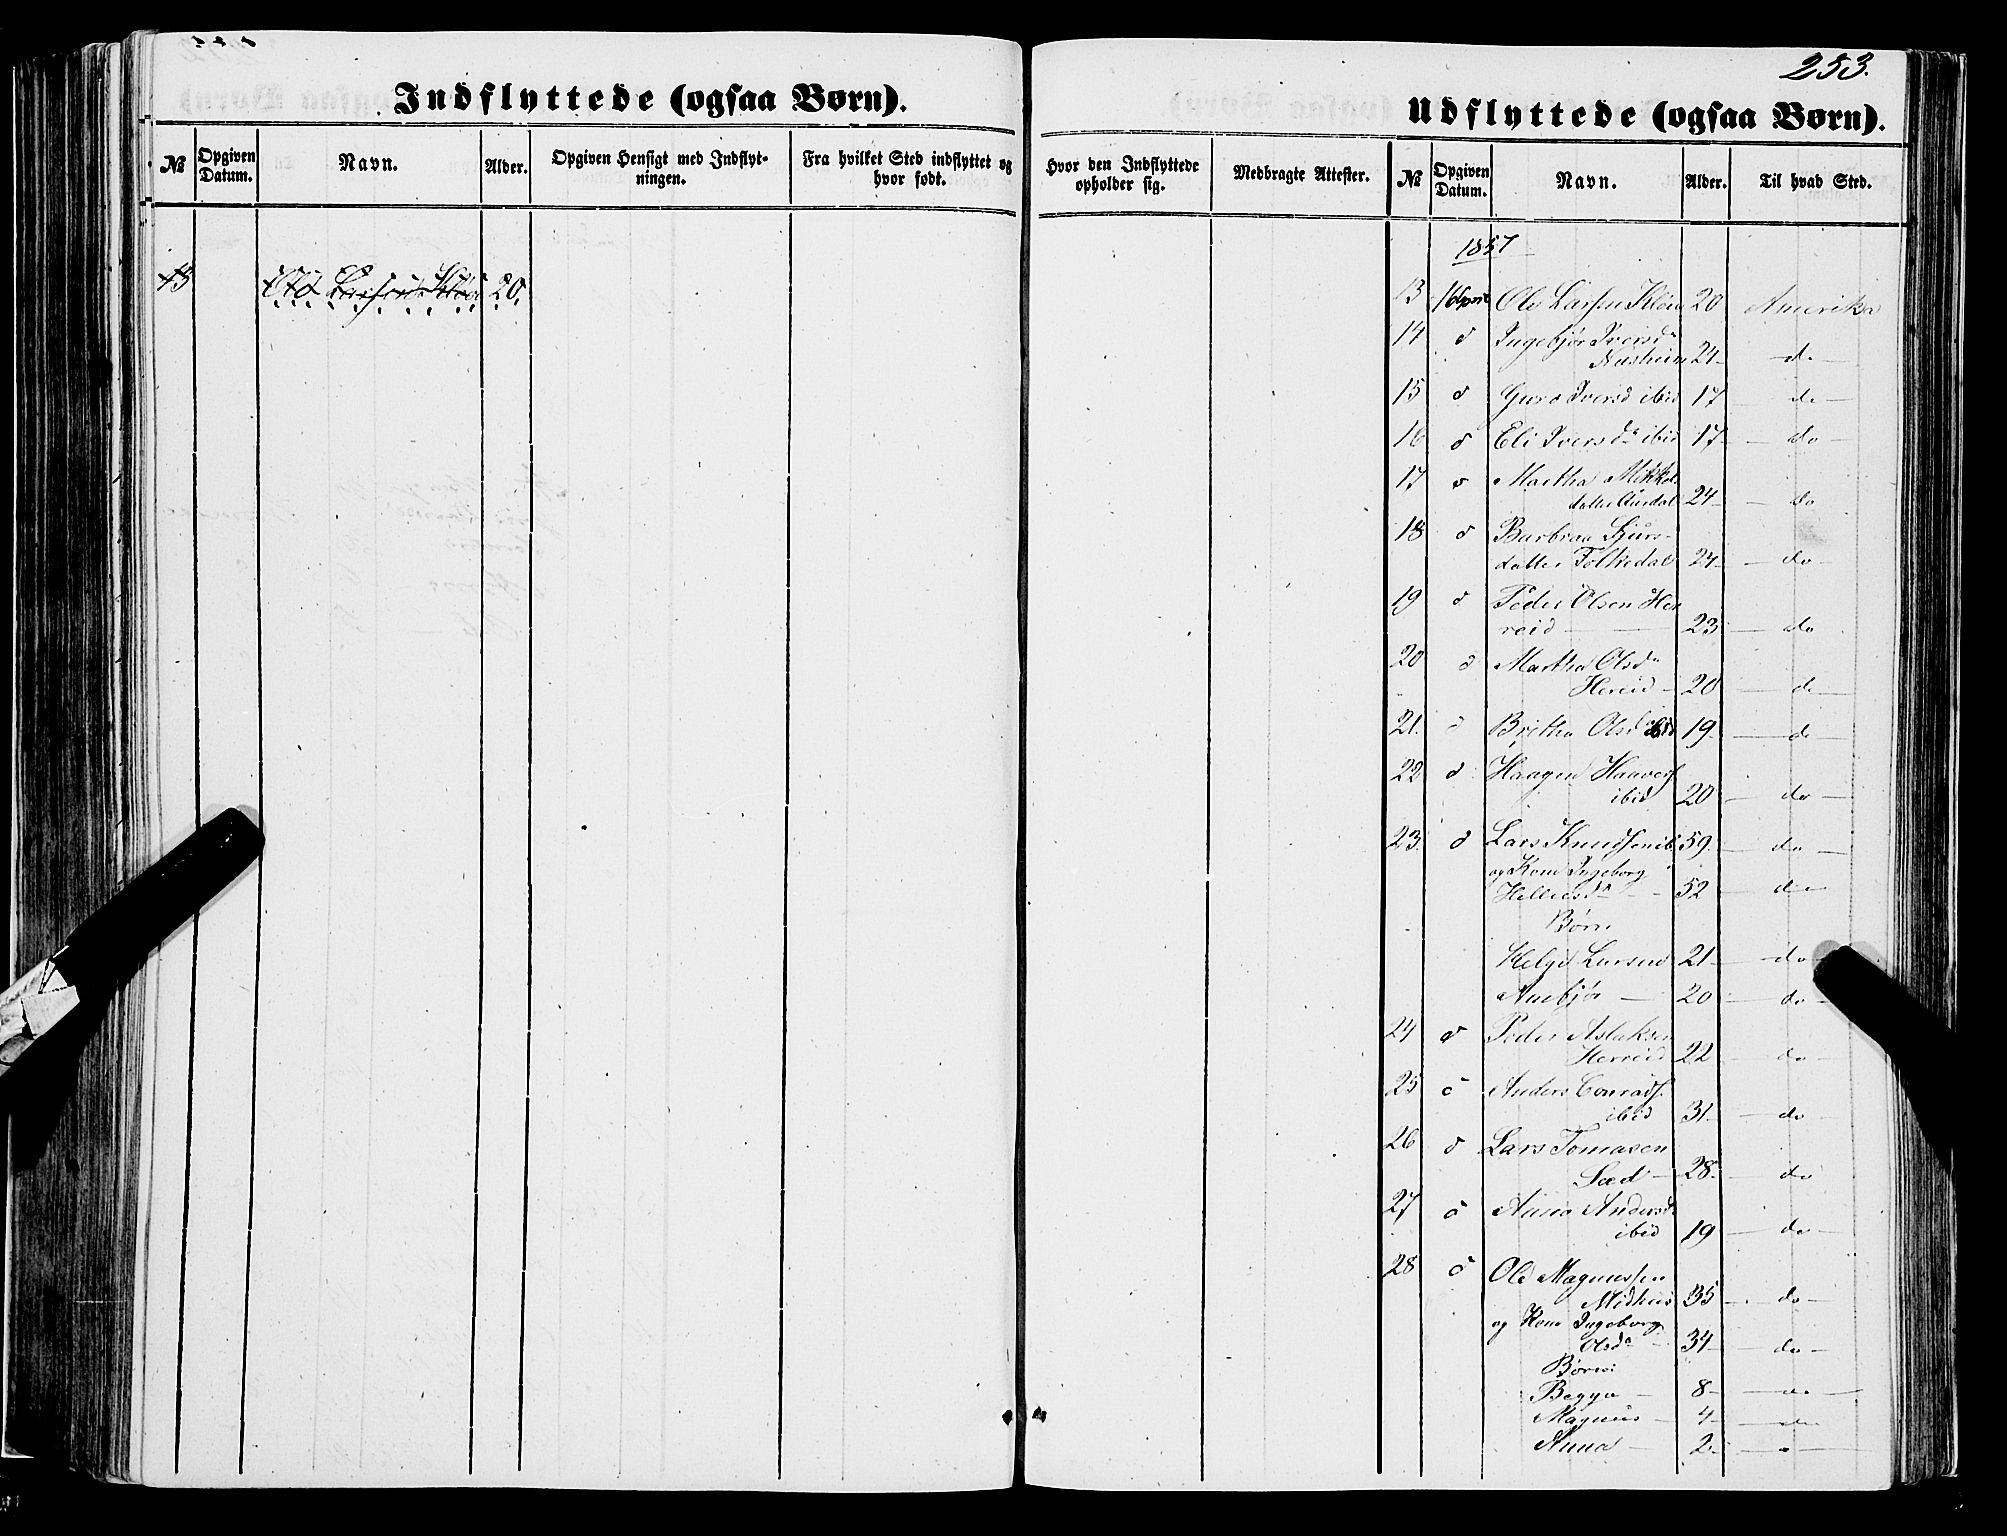 253.
Indflyttede (ogsaa Børn).
Udflyttede (ogsaa Børn).
№ Opgiven Datum. Navn. Alder. Opgiven Hensigt med Indflytningen. Fra hvilket Sted indflyttet og hvor født. Hvor den Indflyttede opholder sig. Medbragte Attester. № Opgiven Datum. Navn. Alder. Til hvad Sted.
1857
13 Ole Larsen 20
13 16 April Ole Larsen 20 Amerika
14 d Ingebjør Iversdr
24 do
15 d Guro Iversd ibid 17 do
16 d Eli Iversdr ibid 17 do
17 d Martha Mikkels
datter 24 do
18 d Barbraa Sjurs-
datter Folkedal 24 do
19 d Peder Olsen Her
reid 23 do
20 d Martha Olsdr
Hereid 20 do
21. d Britha Olsd ibid 19 do
22 d Haagen Haavers
ibid 20 do
23. d Lars Knudsen ib. 59 do
og Kone Ingeborg
Hellesdr 52 do
Børn
Helge Larsen 21 do
Anebjør 20 do
24 d Peder Aslaksen
Herreid 22 do
25 d Anders Conrads.
ibid 31 do
26 d Lars Tomasen
Sæd 28 do
27 d Anna Andersd
ibid 19 do
28 d Ole Magnussen
Midhus 35 do
og Kone Ingeborg
Olsdr 34 do
Børn
Begga 8 do
Magnus 4 do
Anna 2